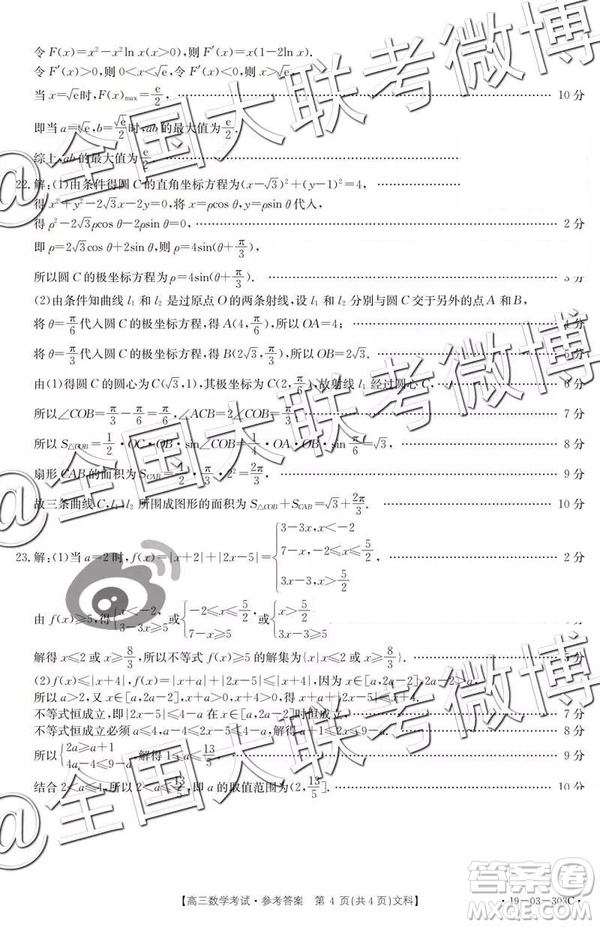 令F(x)=x²-x²ln x(x>0),则F′(x)=x(1-2ln x).
令F′(x)>0,则0<x<√e;令F′(x)<0,则x>√e.
当x=√e时,F(x)max=e/2, 10分
即当a=√e,b=√e/2时,ab的最大值为e/2.
综上,ab的最大值为e/2.
22.解:(1)由条件得圆C的直角坐标方程为(x-√3)²+(y-1)²=4,
得x²+y²-2√3x-2y=0,将x=ρcos θ,y=ρsin θ代入,
得ρ²-2√3ρcos θ-2ρsin θ=0, 2分
即ρ=2√3cos θ+2sin θ,则ρ=4sin(θ+π/3),
所以圆C的极坐标方程为ρ=4sin(θ+π/3).
(2)由条件知曲线l₁和l₂是过原点O的两条射线,设l₁和l₂分别与圆C交于另外的点A和B,
将θ=π/6代入圆C的极坐标方程,得A(4,π/6),所以OA=4; 4分
将θ=π/3代入圆C的极坐标方程,得B(2√3,π/3),所以OB=2√3. 5分
由(1)得圆C的圆心为C(√3,1),其极坐标为C(2,π/6),故射线l₁经过圆心C, 6分
所以∠COB=π/3-π/6=π/6,∠ACB=2∠COB=π/3. 7分
所以S△COB=1/2·OC·OB·sin∠COB=1/4·OA·OB·sin π/6=√3, 8分
扇形CAB的面积为S CAB=1/2·π/3·2²=2π/3, 9分
故三条曲线C,l₁,l₂所围成图形的面积为S△COB+S CAB=√3+2π/3. 10分
23.解:(1)当a=2时,f(x)=|x+2|+|2x-5|={3-3x,x<-2 7-x,-2≤x≤5/2 3x-3,x>5/2 2分
由f(x)≥5,得{x<-2 3-3x≥5或{-2≤x≤5/2 7-x≥5或{x>5/2 3x-3≥5,
解得x≤2或x≥8/3,所以不等式f(x)≥5的解集为{x|x≤2或x≥8/3}.
(2)f(x)≤|x+4|,f(x)=|x+a|+|2x-5|≤|x+4|,因为x∈[a,2a-2],所以2a-2>a,
所以a>2,又x∈[a,2a-2],所以x+a>0,x+4>0,得x+a+|2x-5|≤x+4.
不等式恒成立,即|2x-5|≤4-a在x∈[a,2a-2]时恒成立, 7分
不等式恒成立必须a≤4,a-4≤2x-5≤4-a,解得a+1≤2x≤9-a. 8分
所以{2a≥a+1 4a-4≤9-a,解得1≤a≤13/5, 9分
结合2<a≤4,所以2<a≤13/5,即a的取值范围为(2,13/5]. 10分
【高三数学考试·参考答案 第4页(共4页)文科】
·19-03-303C·
@全国大联考微博
@全国大联考微博
@全国大联考微博